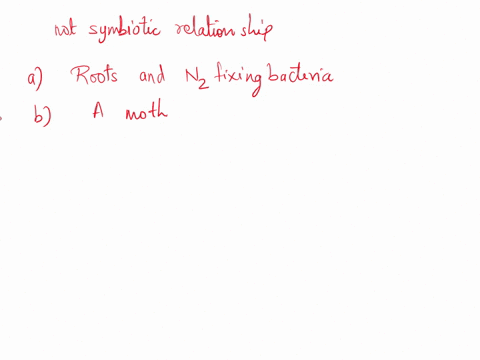 not symbiotic relationship
a) Roots and N2 fixing bacteria
b) A moth